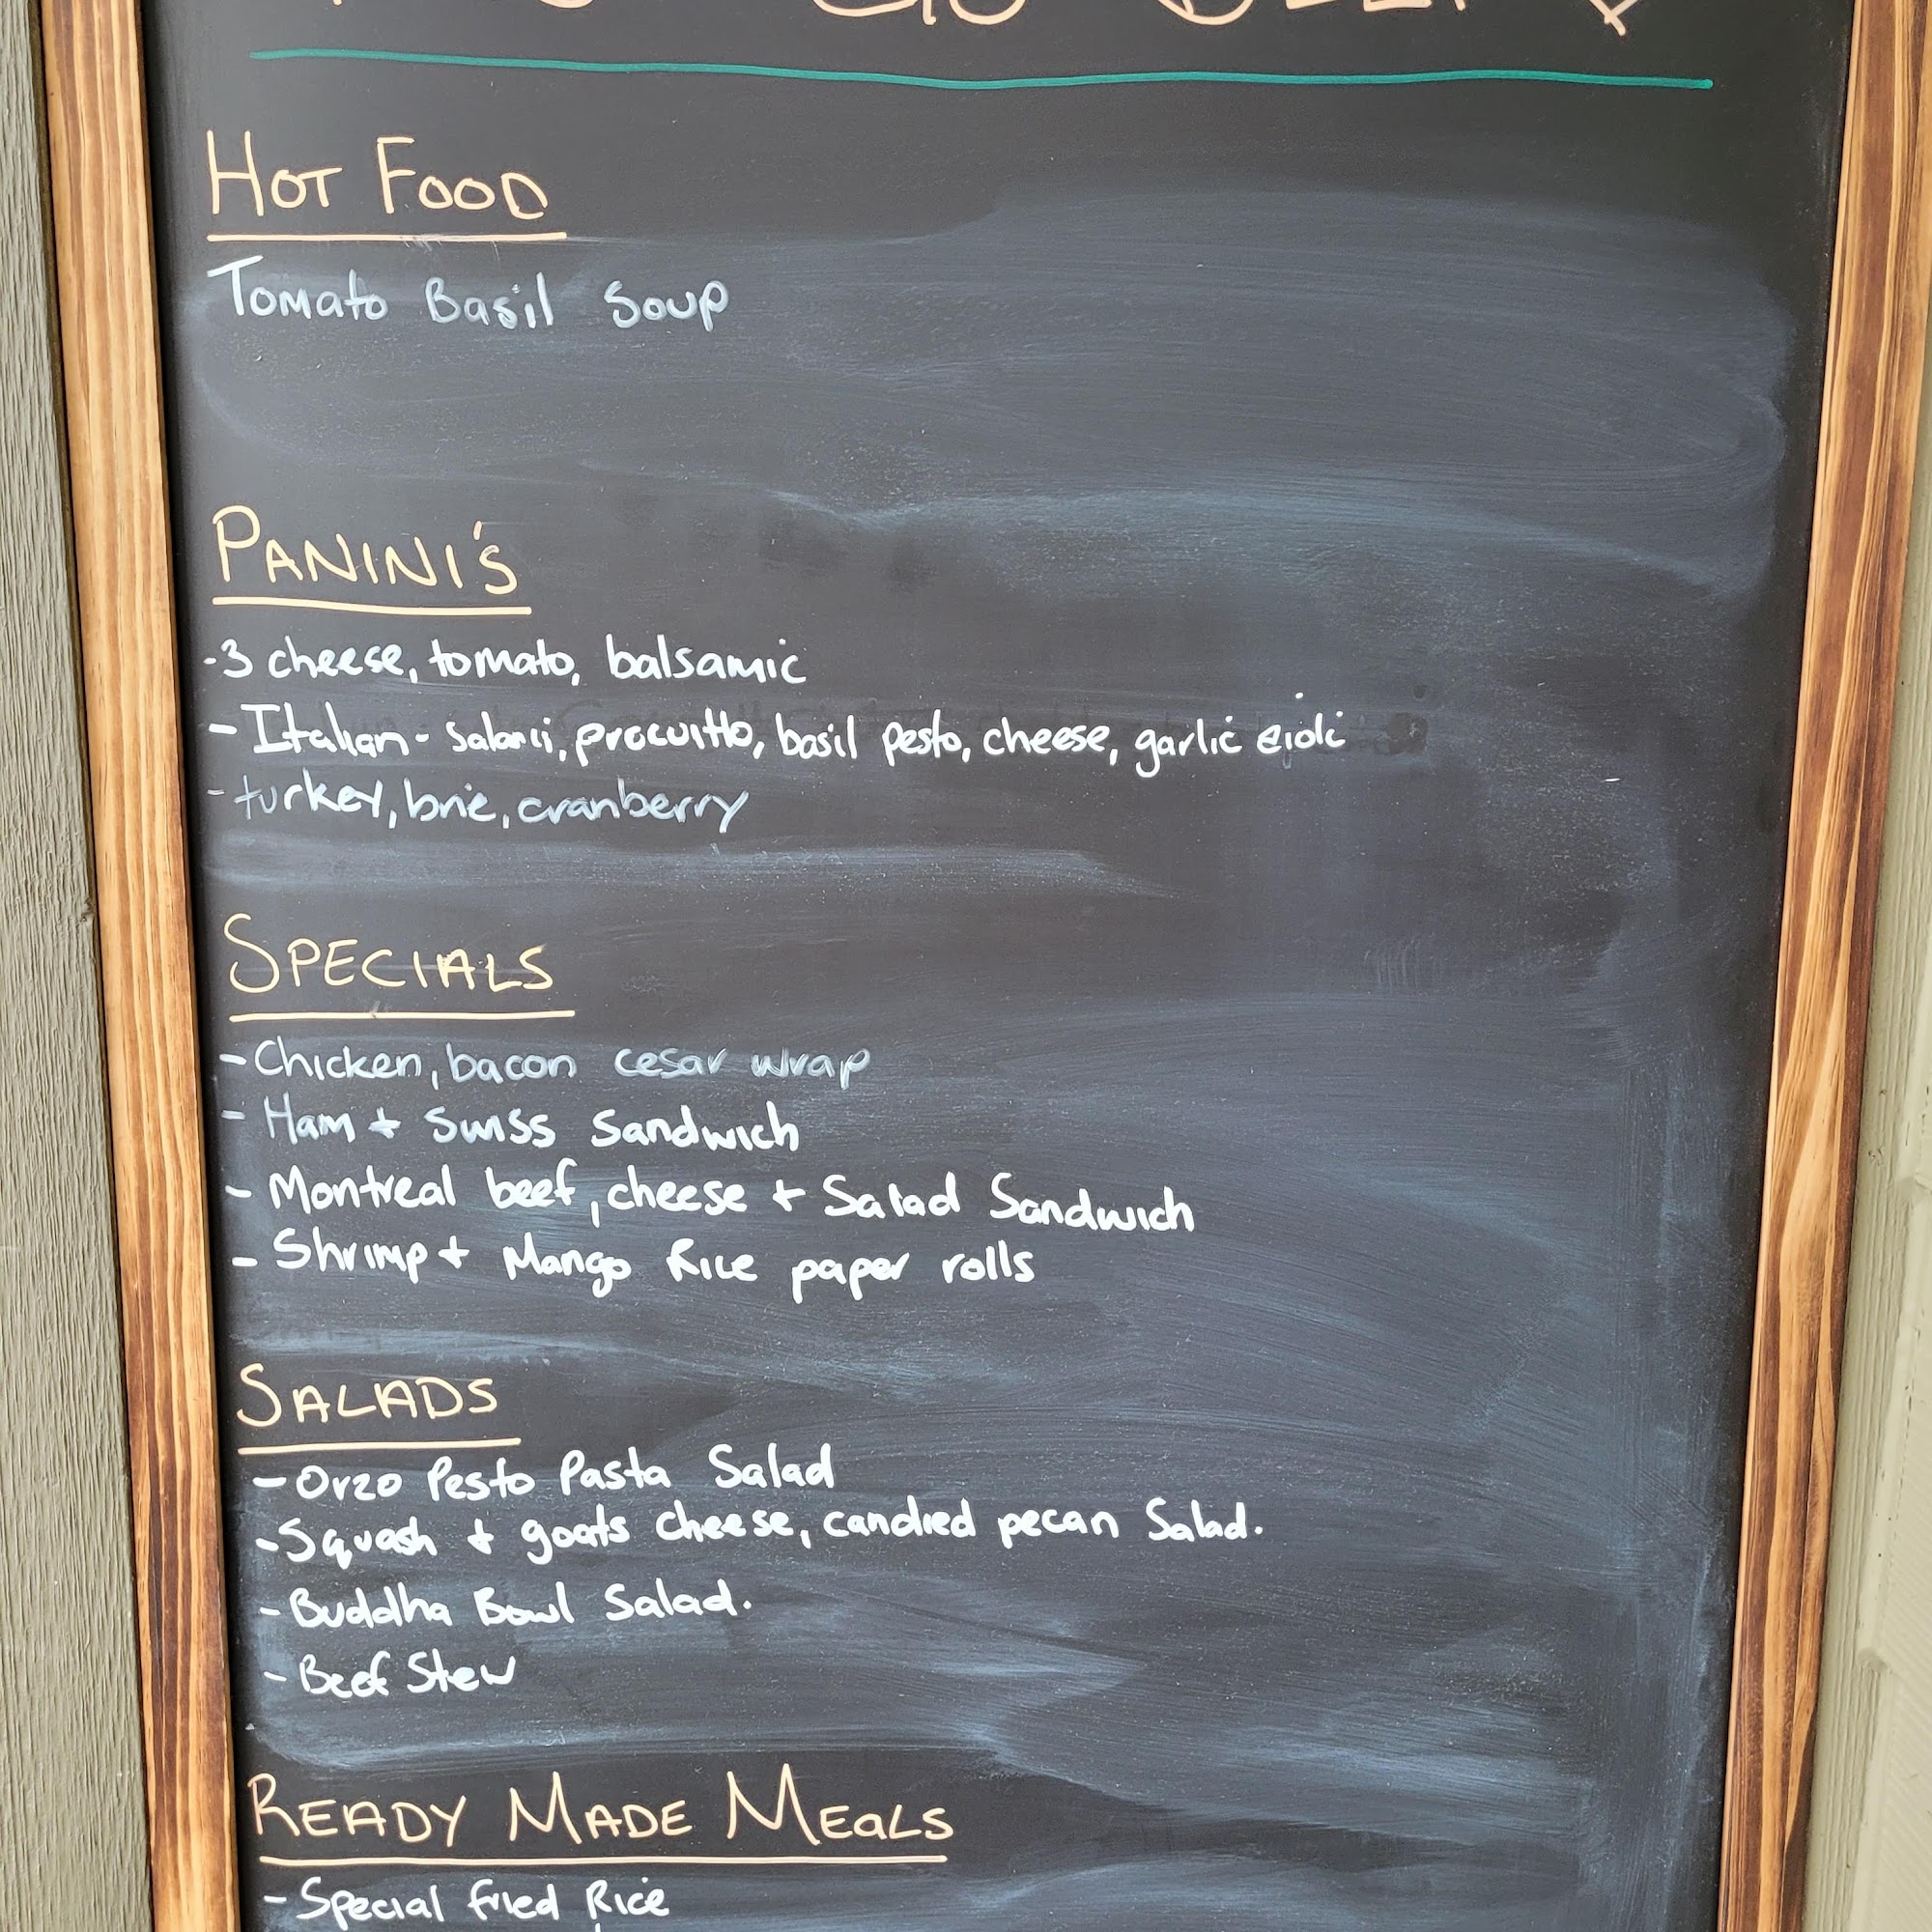 HOT FOOD
Tomato Basil Soup
PANINI'S
-3 cheese, tomato, balsamic
- Italian - salami, procuitto, basil pesto, cheese, garlic aioli
- turkey, brie, cranberry
SPECIALS
- Chicken, bacon cesar wrap
- Ham + Swiss Sandwich
- Montreal beef, cheese + Salad Sandwich
- Shrimp + Mango Rice paper rolls
SALADS
- Orzo Pesto Pasta Salad
- Squash + goats cheese, candied pecan Salad.
- Buddha Bowl Salad.
- Beef Stew
READY MADE MEALS
- Special Fried Rice